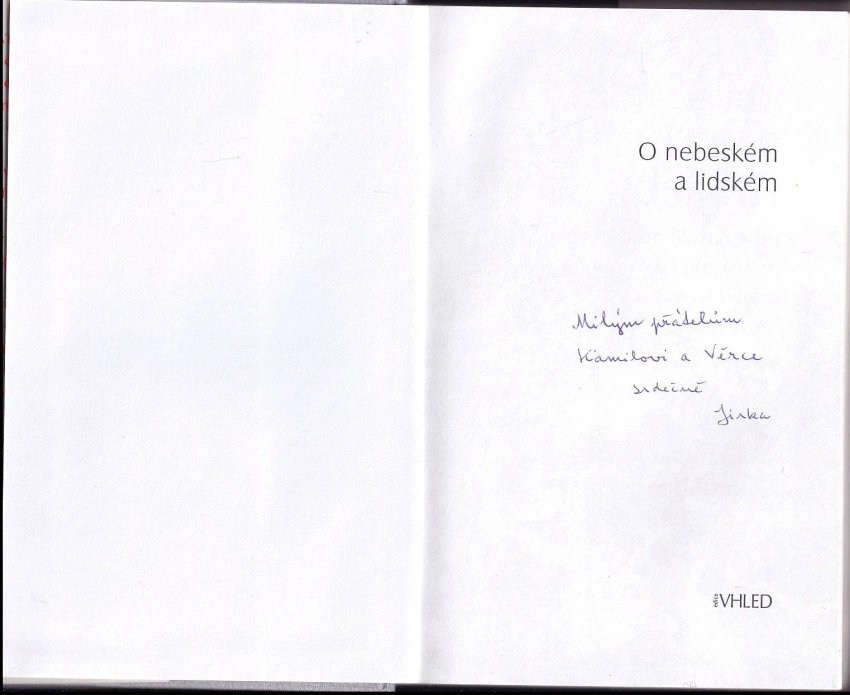 O nebeském
a lidském
Milým přátelům
Kamilovi a Věrce
srdečně
Jirka
edice VHLED